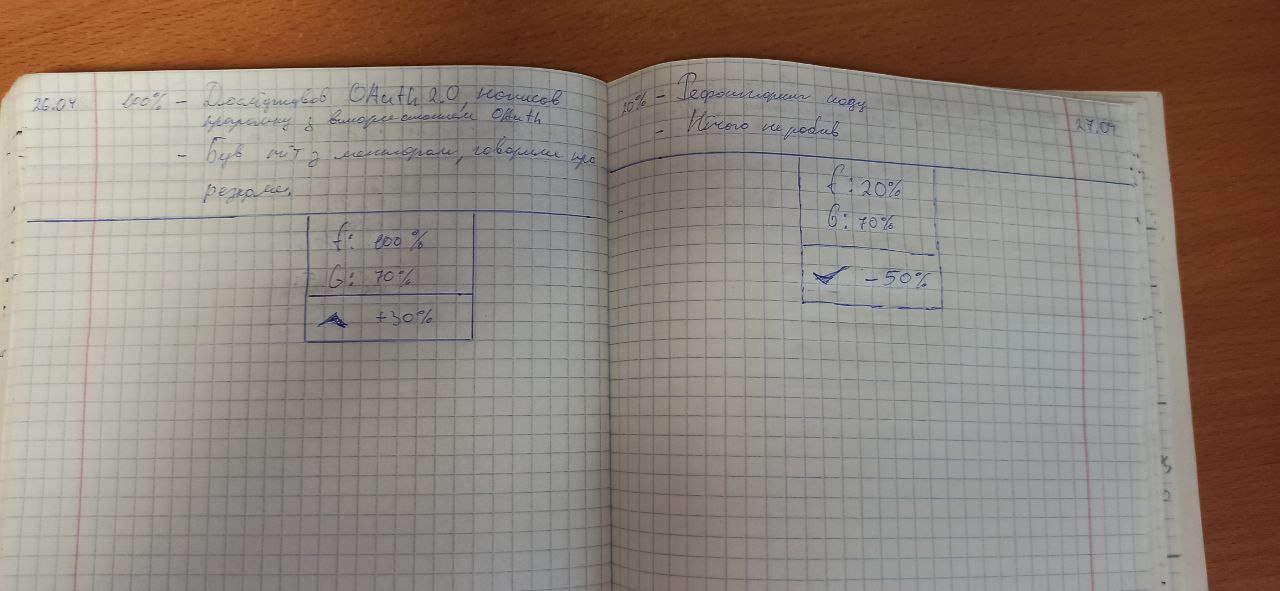 26.04 100% - Досліджував OAuth 2.0, написав
програмку з використанням OAuth
- Був міт з ментором, говорили про
резюме.
f: 100%
G: 70%
+30%
20% - Рефакторинг коду 27.04
- Нічого не робив
f: 20%
G: 70%
-50%